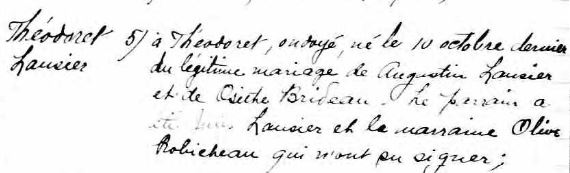 Théodoret 5) à Théodoret, ondoyé, né le 10 octobre dernier
Lausier du légitime mariage de Augustin Lausier
et de Osithe Brideau. Le parrain a
été Lausier et la marraine Olive
Robicheau qui n'ont su signer;